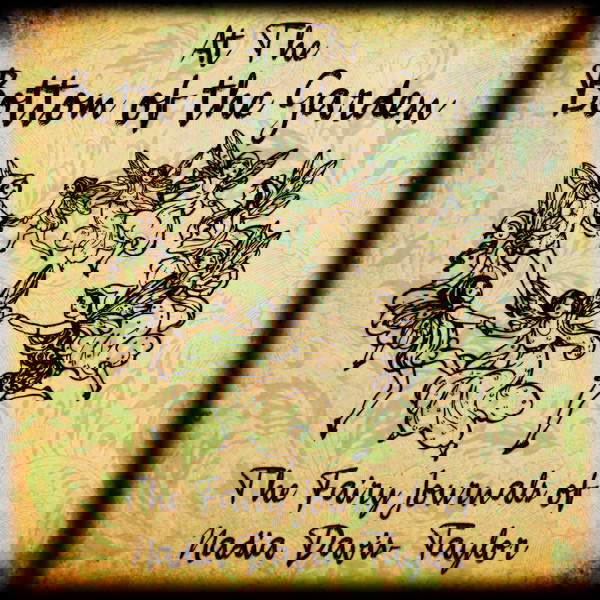 At The
Bottom of the Garden
The Fairy Journals of
Nadia Davis- Taylor